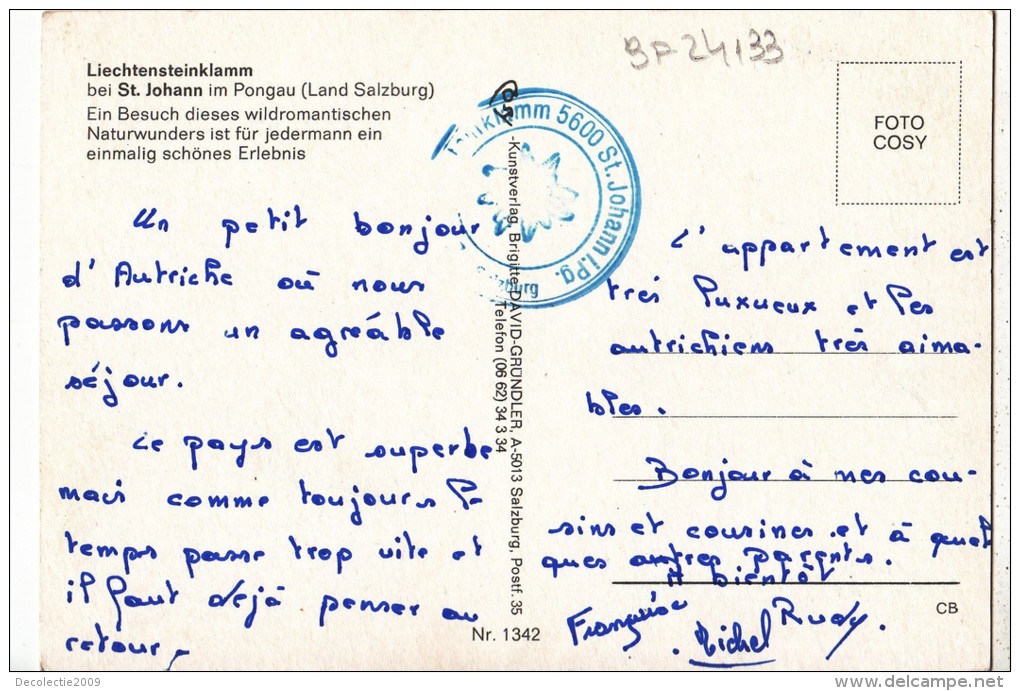 BF24133
Liechtensteinklamm
bei St. Johann im Pongau (Land Salzburg)
Ein Besuch dieses wildromantischen
Naturwunders ist für jedermann ein
einmalig schönes Erlebnis
FOTO
COSY
klamm 5600 St. Johann i. Pg.
Salzburg
Cosy-Kunstverlag, Brigitte DAVID-GRÜNDLER, A-5013 Salzburg, Postf. 35
Telefon (06 62) 34 3 34
Un petit bonjour
d'Autriche où nous
passons un agréable
séjour.
Le pays est superbe
mais comme toujours le
temps passe trop vite et
il faut déjà penser au
retour.
L'appartement est
très luxueux et les
autrichiens très aima-
bles.
Bonjour à mes cou-
sins et cousines et à quel
ques autres parents.
A bientôt
Françoise
Michel
Rudy.
CB
Nr. 1342
Decolectie2009
delcampe.net